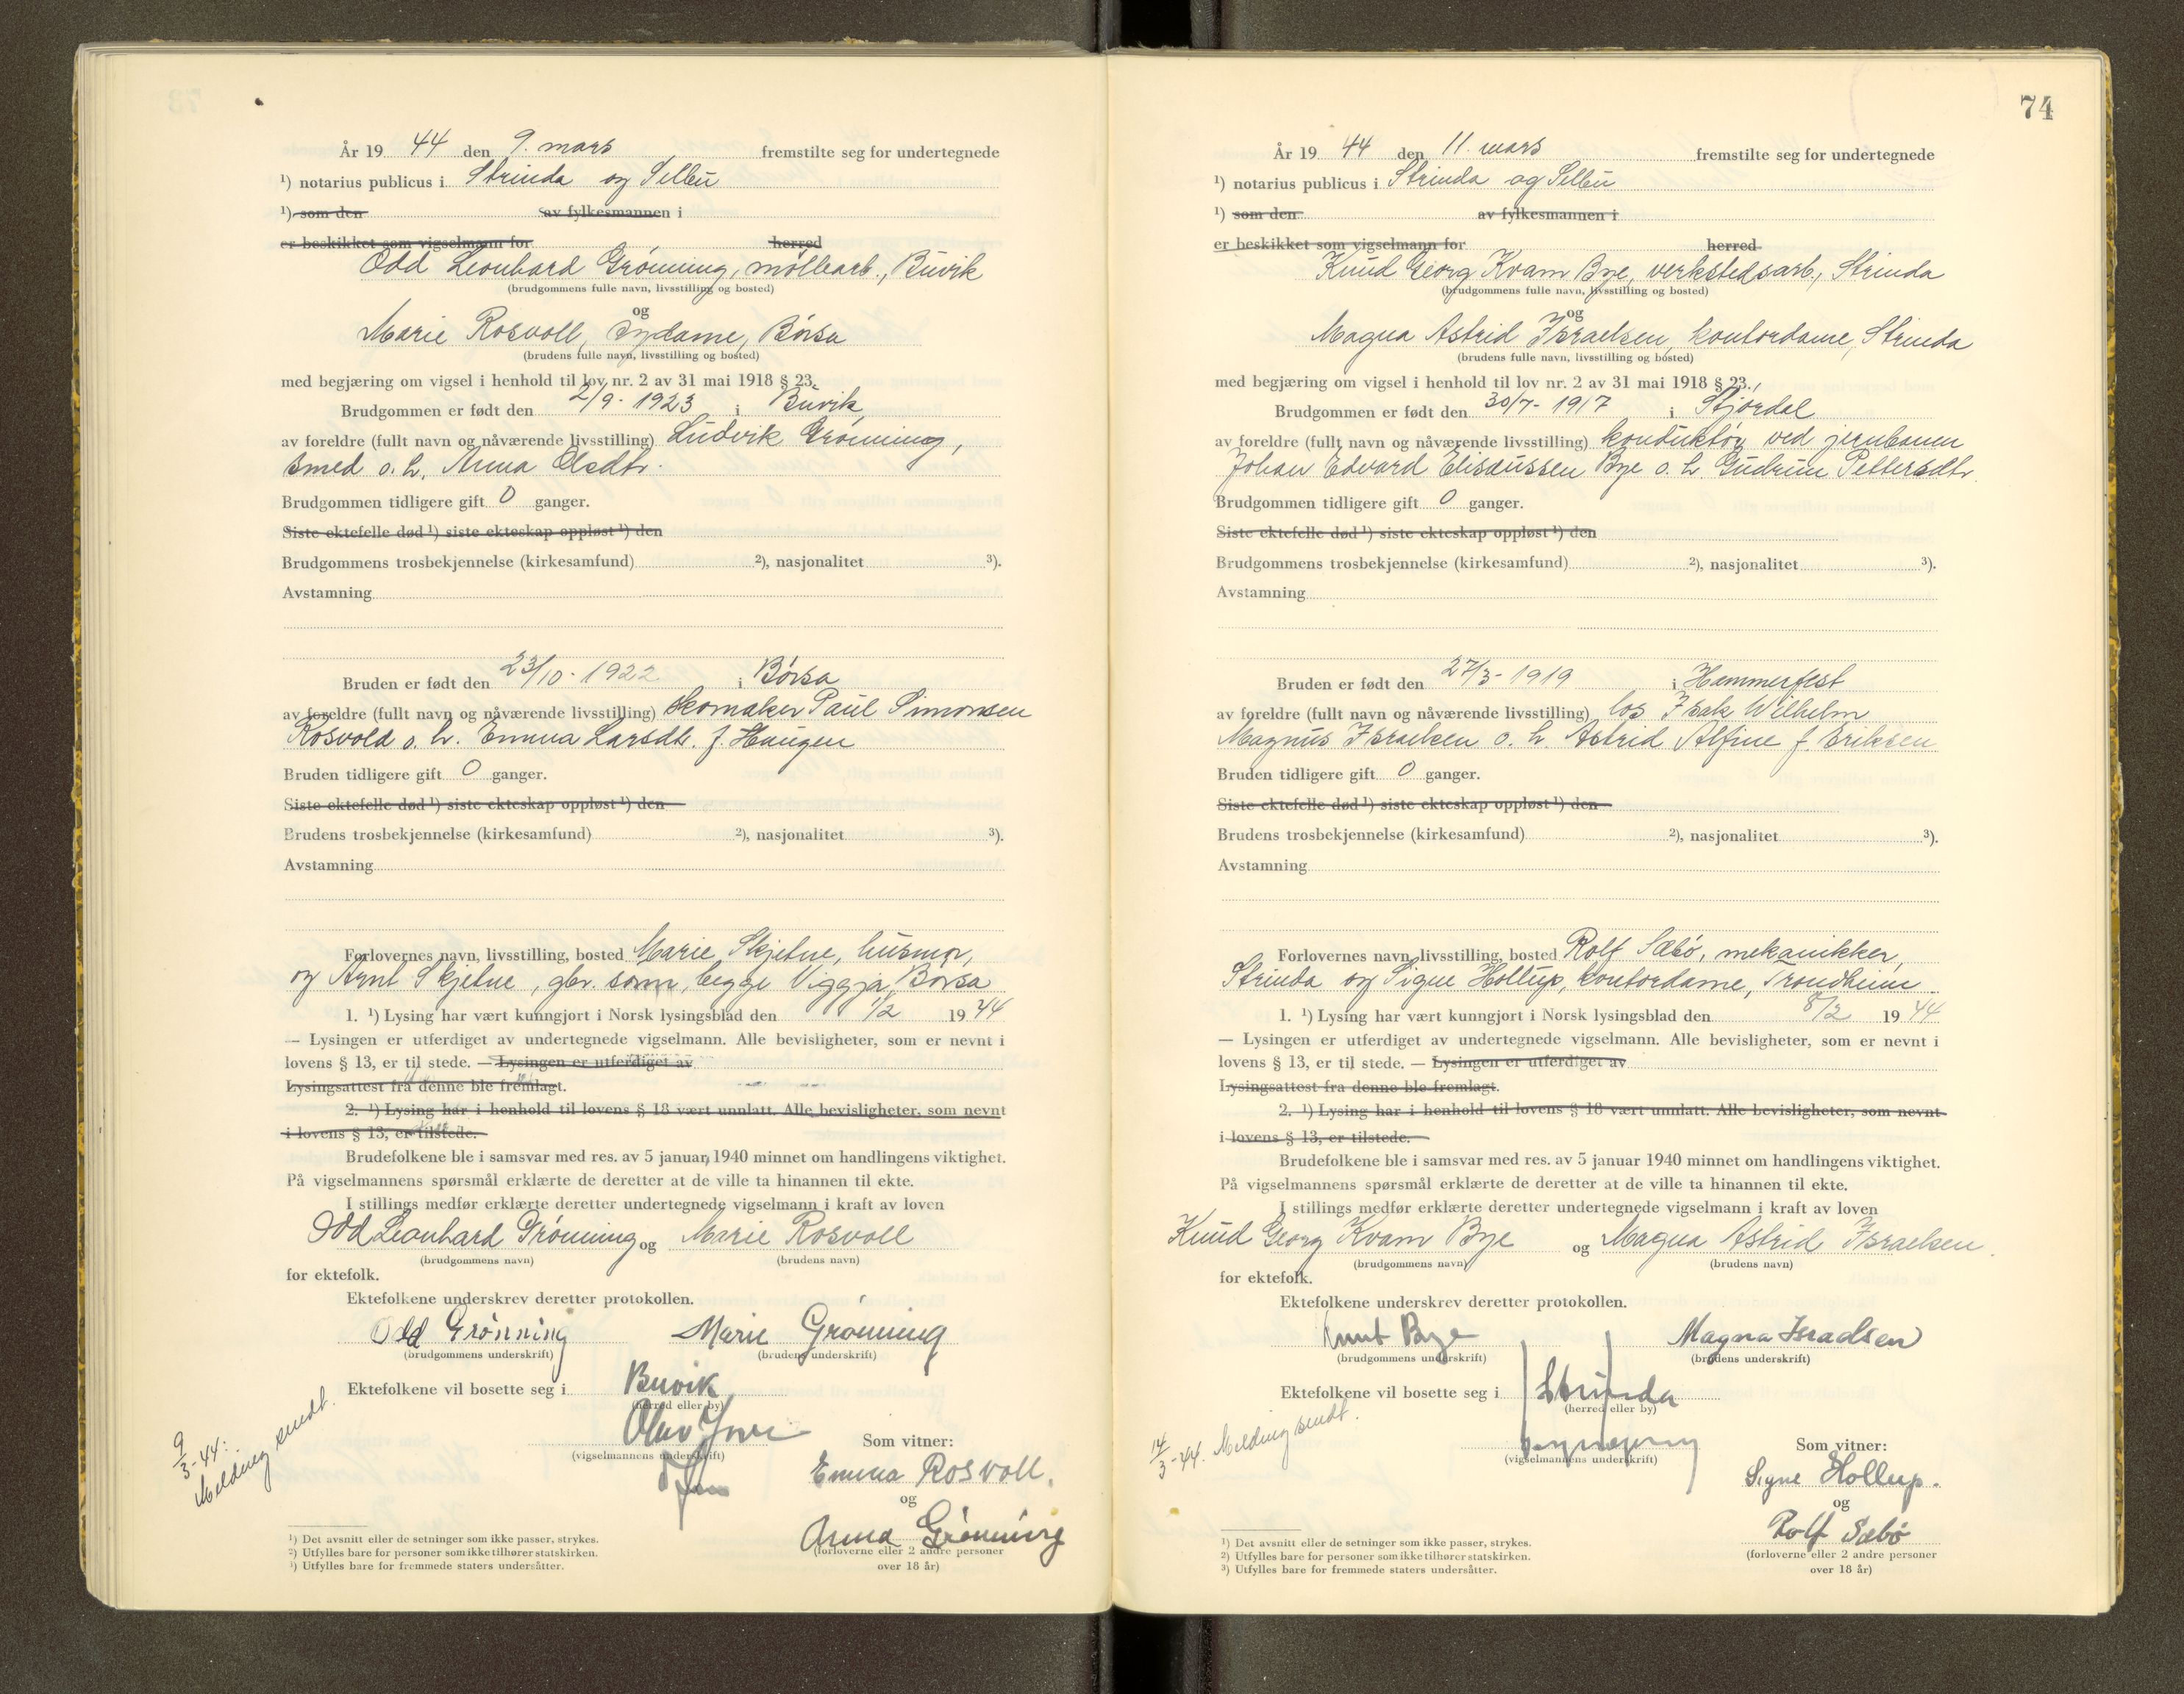 År 19 44 den 9. mars fremstilte seg for undertegnede
¹) notarius publicus i Strinda og Selbu
¹) som den av fylkesmannen i
er beskikket som vigselmann for herred
Odd Leonhard Grönning, möllearb., Buvik
(brudgommens fulle navn, livsstilling og bosted)
og
Marie Rosvoll, sydame, Börsa
(brudens fulle navn, livsstilling og bosted)
med begjæring om vigsel i henhold til lov nr. 2 av 31 mai 1918 § 23.
Brudgommen er født den 2/9 - 1923 i Buvik
av foreldre (fullt navn og nåværende livsstilling) Ludvik Grönning,
smed o. h. Anna Olsdtr.
Brudgommen tidligere gift 0 ganger.
Siste ektefelle død ¹) siste ekteskap oppløst ¹) den
Brudgommens trosbekjennelse (kirkesamfund) ²), nasjonalitet ³).
Avstamning
Bruden er født den 23/10 - 1922 i Börsa
av foreldre (fullt navn og nåværende livsstilling) Skomaker Paul Simonsen
Rosvold o. h. Emma Larsdtr. f. Haugen
Bruden tidligere gift 0 ganger.
Siste ektefelle død ¹) siste ekteskap oppløst ¹) den
Brudens trosbekjennelse (kirkesamfund) ²), nasjonalitet ³).
Avstamning
Forlovernes navn, livsstilling, bosted Marie Skjetne, husmor,
og Arnt Skjetne, gbr. sønn, begge Viggja, Börsa
1. ¹) Lysing har vært kunngjort i Norsk lysingsblad den 1/2 19 44
— Lysingen er utferdiget av undertegnede vigselmann. Alle bevisligheter, som er nevnt i
lovens § 13, er til stede. — Lysingen er utferdiget av
Lysingsattest fra denne ble fremlagt.
2. ¹) Lysing har i henhold til lovens § 18 vært unnlatt. Alle bevisligheter, som nevnt
i lovens § 13, er tilstede.
Brudefolkene ble i samsvar med res. av 5 januar 1940 minnet om handlingens viktighet.
På vigselmannens spørsmål erklærte de deretter at de ville ta hinannen til ekte.
I stillings medfør erklærte deretter undertegnede vigselmann i kraft av loven
Odd Leonhard Grönning og Marie Rosvoll
(brudgommens navn) (brudens navn)
for ektefolk.
Ektefolkene underskrev deretter protokollen.
Odd Grönning Marie Grönning
(brudgommens underskrift) (brudens underskrift)
Ektefolkene vil bosette seg i Buvik
(herred eller by)
9/3-44: Melding sendt.
Som vitner:
(vigselmannens underskrift)
Emma Rosvoll.
og
Anna Grönning
(forloverne eller 2 andre personer
over 18 år)
¹) Det avsnitt eller de setninger som ikke passer, strykes.
²) Utfylles bare for personer som ikke tilhører statskirken.
³) Utfylles bare for fremmede staters undersåtter.
74
År 19 44 den 11. mars fremstilte seg for undertegnede
¹) notarius publicus i Strinda og Selbu
¹) som den av fylkesmannen i
er beskikket som vigselmann for herred
Knud Georg Kvam Bye, verkstedsarb., Strinda
(brudgommens fulle navn, livsstilling og bosted)
og
Magna Astrid Israelsen, kontordame, Strinda
(brudens fulle navn, livsstilling og bosted)
med begjæring om vigsel i henhold til lov nr. 2 av 31 mai 1918 § 23.
Brudgommen er født den 30/7 - 1917 i Stjördal
av foreldre (fullt navn og nåværende livsstilling) konduktör ved jernbanen
Johan Edvard Elisæussen Bye o. h. Gudrun Pettersdtr.
Brudgommen tidligere gift 0 ganger.
Siste ektefelle død ¹) siste ekteskap oppløst ¹) den
Brudgommens trosbekjennelse (kirkesamfund) ²), nasjonalitet ³).
Avstamning
Bruden er født den 27/3 - 1919 i Hammerfest
av foreldre (fullt navn og nåværende livsstilling) los Isak Wilhelm
Magnus Israelsen o. h. Astrid Alfine f. Eriksen
Bruden tidligere gift 0 ganger.
Siste ektefelle død ¹) siste ekteskap oppløst ¹) den
Brudens trosbekjennelse (kirkesamfund) ²), nasjonalitet ³).
Avstamning
Forlovernes navn, livsstilling, bosted Rolf Sæbö, mekanikker,
Strinda og Signe Hollup, kontordame, Trondheim
1. ¹) Lysing har vært kunngjort i Norsk lysingsblad den 8/2 19 44
— Lysingen er utferdiget av undertegnede vigselmann. Alle bevisligheter, som er nevnt i
lovens § 13, er til stede. — Lysingen er utferdiget av
Lysingsattest fra denne ble fremlagt.
2. ¹) Lysing har i henhold til lovens § 18 vært unnlatt. Alle bevisligheter, som nevnt
i lovens § 13, er tilstede.
Brudefolkene ble i samsvar med res. av 5 januar 1940 minnet om handlingens viktighet.
På vigselmannens spørsmål erklærte de deretter at de ville ta hinannen til ekte.
I stillings medfør erklærte deretter undertegnede vigselmann i kraft av loven
Knud Georg Kvam Bye og Magna Astrid Israelsen.
(brudgommens navn) (brudens navn)
for ektefolk.
Ektefolkene underskrev deretter protokollen.
Knut Bye Magna Israelsen
(brudgommens underskrift) (brudens underskrift)
Ektefolkene vil bosette seg i Strinda
(herred eller by)
14/3-44. Melding sendt.
Som vitner:
(vigselmannens underskrift)
Signe Hollup.
og
Rolf Sæbö
(forloverne eller 2 andre personer
over 18 år)
¹) Det avsnitt eller de setninger som ikke passer, strykes.
²) Utfylles bare for personer som ikke tilhører statskirken.
³) Utfylles bare for fremmede staters undersåtter.